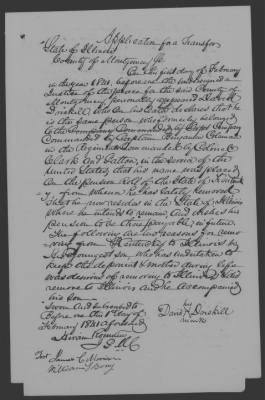 Application for a Transfer
State of Illinois
County of Montgomery
On the first day of February
in the year 1841, before me the undersigned a
Justice of the peace for the said County of
Montgomery, personally appeared David
Driskill, who on his oath declares that he
is the same person who formerly belonged
to the Company Commanded by
Commanded by Captain
in the Regiment Commanded by Colonel
Clark and in the service of the
United States; that his name was placed
on the pension roll of the State of
from whence he has lately removed
that he now resides in the State of Illinois
where he intends to remain and wishes his
pension to be there payable in future.
The following are his reasons for remo
ving from Kentucky to Illinois
His youngest son, who has undertaken to
keep the deponent & mother during life
was desirous of removing to Illinois &
remove to Illinois and he accompanied
his son
Sworn and Subscribed to
Before me the 1st day of
February 1841 aforesaid
David Driskill
mark
Hiram
Test James C
William